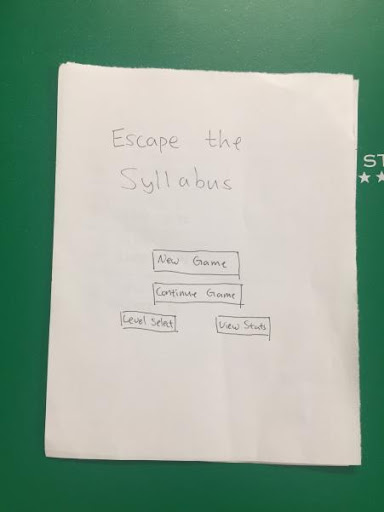 Escape the
Syllabus
ST
New Game
Continue Game
Level Select
View Stats